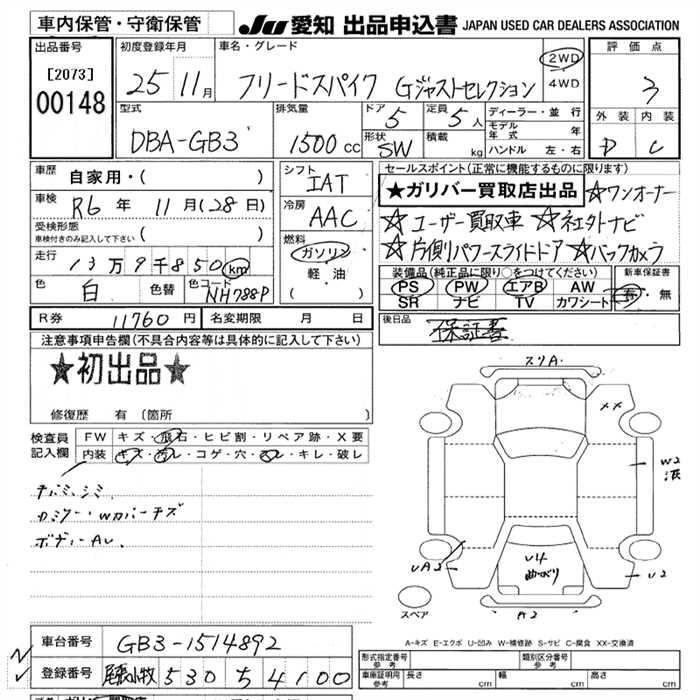 車内保管・守衛保管
JU 愛知 出品申込書 JAPAN USED CAR DEALERS ASSOCIATION
出品番号 初度登録年月 車名・グレード 評価点
[2073] 00148 25 11月 フリードスパイク Gジャストセレクション 2WD 4WD 3
型式 排気量 ドア 5 定員 5人 ディーラー・並行 外装 内装
DBA-GB3 1500cc 形状 SW 積載 kg モデル年式 年 D C
ハンドル 左・右
車歴 自家用・( ) シフト IAT セールスポイント(正常に機能するものに限ります)
★ガリバー買取店出品 ☆ワンオーナー
車検 R6年 11月(28日) 冷房 AAC ☆ユーザー買取車 ☆純正ナビ
受検形態
車検付きのみ記入して下さい ( ) 燃料 ガソリン 軽油 ( ) ☆片側パワースライドドア ☆バックカメラ
走行 13万9千850km 装備品(純正品に限り○をつけてください) 新車保証書
色 白 色替 色コード NH788P PS PW エアB AW 有・無
SR ナビ TV カワシート
R券 11760円 名変期限 月 日 後日品 保証書
注意事項申告欄(不具合内容等は具体的に記入して下さい)
★初出品★
修復歴 有 (箇所 )
スリA
XX
検査員記入欄 FW キズ・飛石・ヒビ割・リペア跡・X要
内装 キズ・汚レ・コゲ・穴・スレ・キレ・破レ
W2
チバミ、シミ
ボディーAレ
UA2 U4 曲がり U2
スペア A2
A-キズ E-エクボ U-凹み W-補修跡 S-サビ C-腐食 XX-交換済
車台番号 GB3-1514892
形式指定番号 参考 類別区分番号 参考
登録番号 尾張小牧 530 ち 4100
車庫証明用 参考 長さ cm 幅 cm 高さ cm